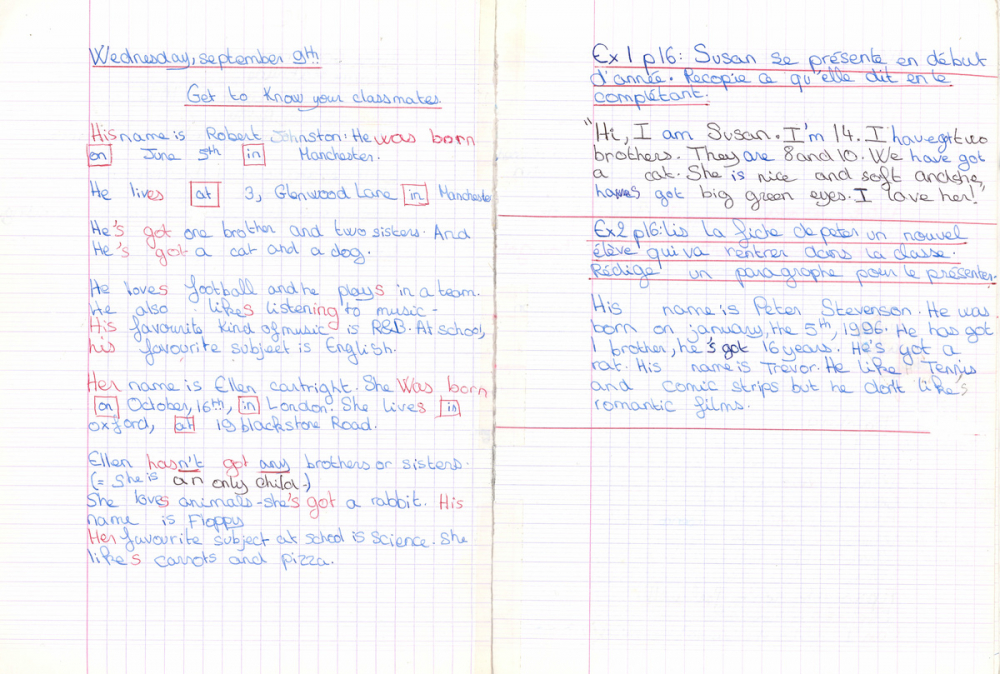 Wednesday, september 9th
Get to Know your classmates
His name is Robert Johnston. He was born
on June 5th in Manchester.
He lives at 3, Glenwood Lane in Manchester
He's got one brother and two sisters. And
He's got a cat and a dog.
He loves football and he plays in a team.
He also likes listening to music.
His favourite Kind of music is R&B. At school,
his favourite subject is English.
Her name is Ellen cartright. She Was born
on October, 16th, in London. She lives in
oxford, at 19 blackstone Road.
Ellen hasn't got any brothers or sisters.
(= She is an only child.)
She loves animals - she's got a rabbit. His
name is Floppy
Her favourite subject at school is Science. She
likes carrots and pizza.
Ex 1 p16: Susan se présente en début
d'année. Recopie ce qu'elle dit en le
complétant.
"Hi, I am Susan. I'm 14. I have got two
brothers. They are 8 and 10. We have got
a cat. She is nice and soft and she
has got big green eyes. I love her!"
Ex2 p16: lis la fiche de peter un nouvel
élève qui va rentrer dans la classe.
Rédige un paragraphe pour le présenter.
His name is Peter Stevenson. He was
born on january, the 5th, 1996. He has got
1 brother, he's got 16 years. He's got a
rat. His name is Trevor. He like Tennis
and comic strips but he don't like's
romantic films.